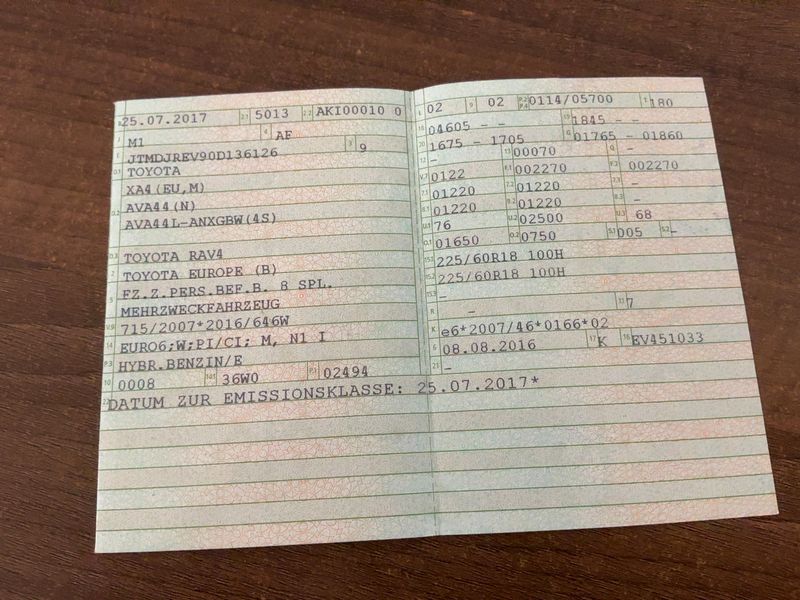 25.07.2017 5013 AKI00010 0
M1 AF
JTMDJREV90D136126 9
TOYOTA
XA4(EU,M)
AVA44(N)
AVA44L-ANXGBW(4S)
TOYOTA RAV4
TOYOTA EUROPE (B)
FZ.Z.PERS.BEF.B. 8 SPL.
MEHRZWECKFAHRZEUG
715/2007*2016/646W
EURO6;W;PI/CI; M, N1 I
HYBR.BENZIN/E
0008 36W0 02494
DATUM ZUR EMISSIONSKLASSE: 25.07.2017*
02 02 0114/05700 180
04605 - - 1845 - -
1675 - 1705 01765 - 01860
- 00070 -
0122 002270 002270
01220 01220 -
01220 01220 -
76 02500 68
01650 0750 005 -
225/60R18 100H
225/60R18 100H
-
- 7
e6*2007/46*0166*02
08.08.2016 K EV451033
-